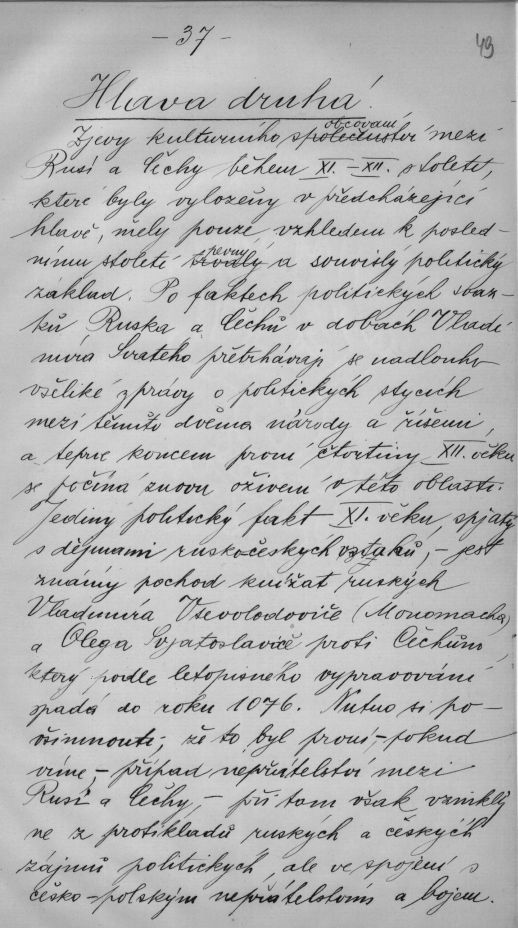 - 37 -
49
Hlava druhá.
obcování
Zjevy kulturního společenství mezi
Rusí a Čechy během XI. - XII. století,
které byly vyloženy v předcházející
hlavě, měly pouze vzhledem k posled-
pevný
nímu století a souvislý politický
základ. Po faktech politických svaz-
ků Ruska a Čechů v dobách Vladi
míra Svatého přetrhávají se nadlouho
všeliké zprávy o politických stycích
mezi těmito dvěma národy a říšemi,
a teprve koncem první čtvrtiny XII. věku
se počíná znovu oživení v této oblasti.
Jediný politický fakt XI. věku, spjatý
s dějinami rusko českých vztahů, - jest
známý pochod knížat ruských
Vladimíra Vsevolodoviče (Monomacha)
a Olega Svjatoslaviče proti Čechům,
který podle letopisného vypravování
spadá do roku 1076. Nutno si po-
všimnouti, že to byl první, - pokud
víme, - případ nepřátelství mezi
Rusí a Čechy, - při tom však vzniklý
ne z protikladů ruských a českých
zájmů politických, ale ve spojení s
česko-polským nepřátelstvím a bojem.